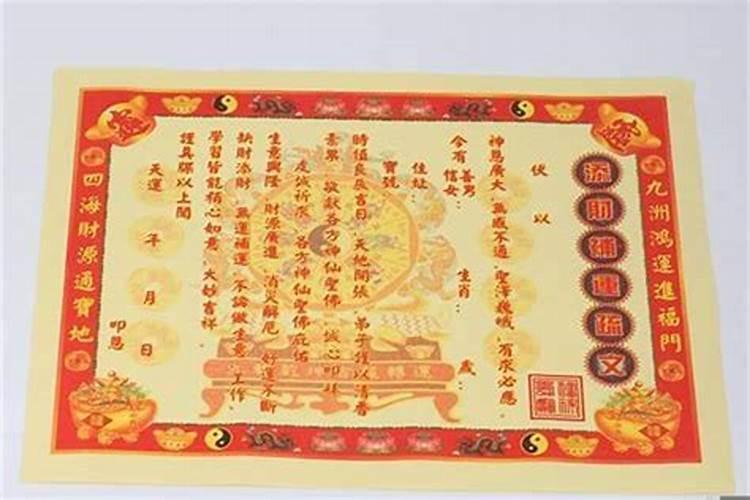 九洲鴻運進福門
添財補運疏文
伏以
神恩廣大 無感不通 聖澤巍峨 有求必應
今有善男
信女：　生肖：　歲：
住址：
寶號
時值良辰吉日 天地開張 弟子謹以清香
素果 誠獻各方神仙聖佛 誠心叩拜
虔誠祈求 各方神仙聖佛庇佑
生意興隆 財源廣進 消災解厄 好運不斷
缺財添財 無運補運 不論做生意 工作、
學習皆能稱心如意 大妙吉祥
謹具疏以上聞
天運　年　月　日
叩恩
四海財源通寶地